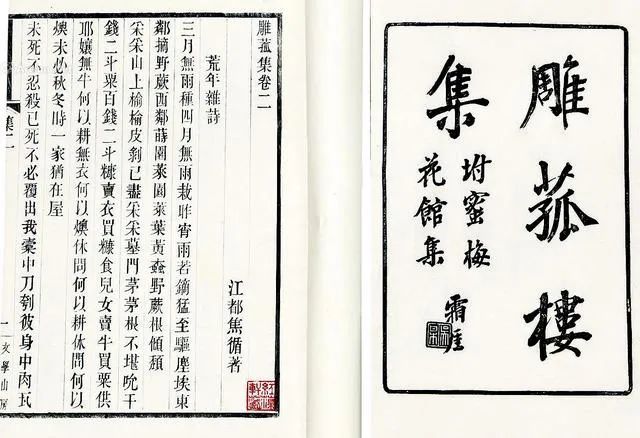 雕菰樓
集
坿蜜梅
花館集
霜厓
雕菰集卷二
江都焦循著
荒年雜詩
三月無雨種四月無雨栽昨宵雨若鏑猛至驅塵埃東
鄰摘野蕨西鄰蒔園萊園萊葉黃野蕨根傾頹
采采山上榆榆皮剝已盡采采墓門茅茅根不堪吮千
錢二斗粟百錢二斗糠賣衣買糠食兒女賣牛買粟供
耶孃無牛何以耕無衣何以燠休問何以耕休問何以
燠未必秋冬時一家猶在屋
未死不忍殺已死不必覆出我橐中刀刳彼身中肉瓦
集二
一
文學山房